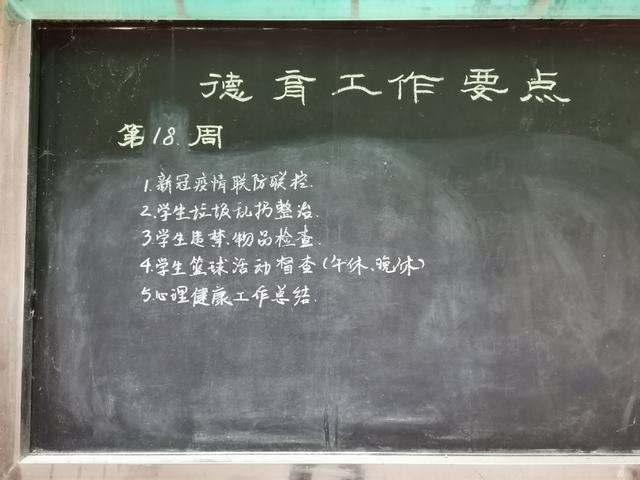 德育工作要点
第18.周
1.新冠疫情联防联控.
2.学生垃圾乱扔整治.
3.学生违禁.物品检查.
4.学生篮球活动督查(午休、晚休)
5.心理健康工作总结.